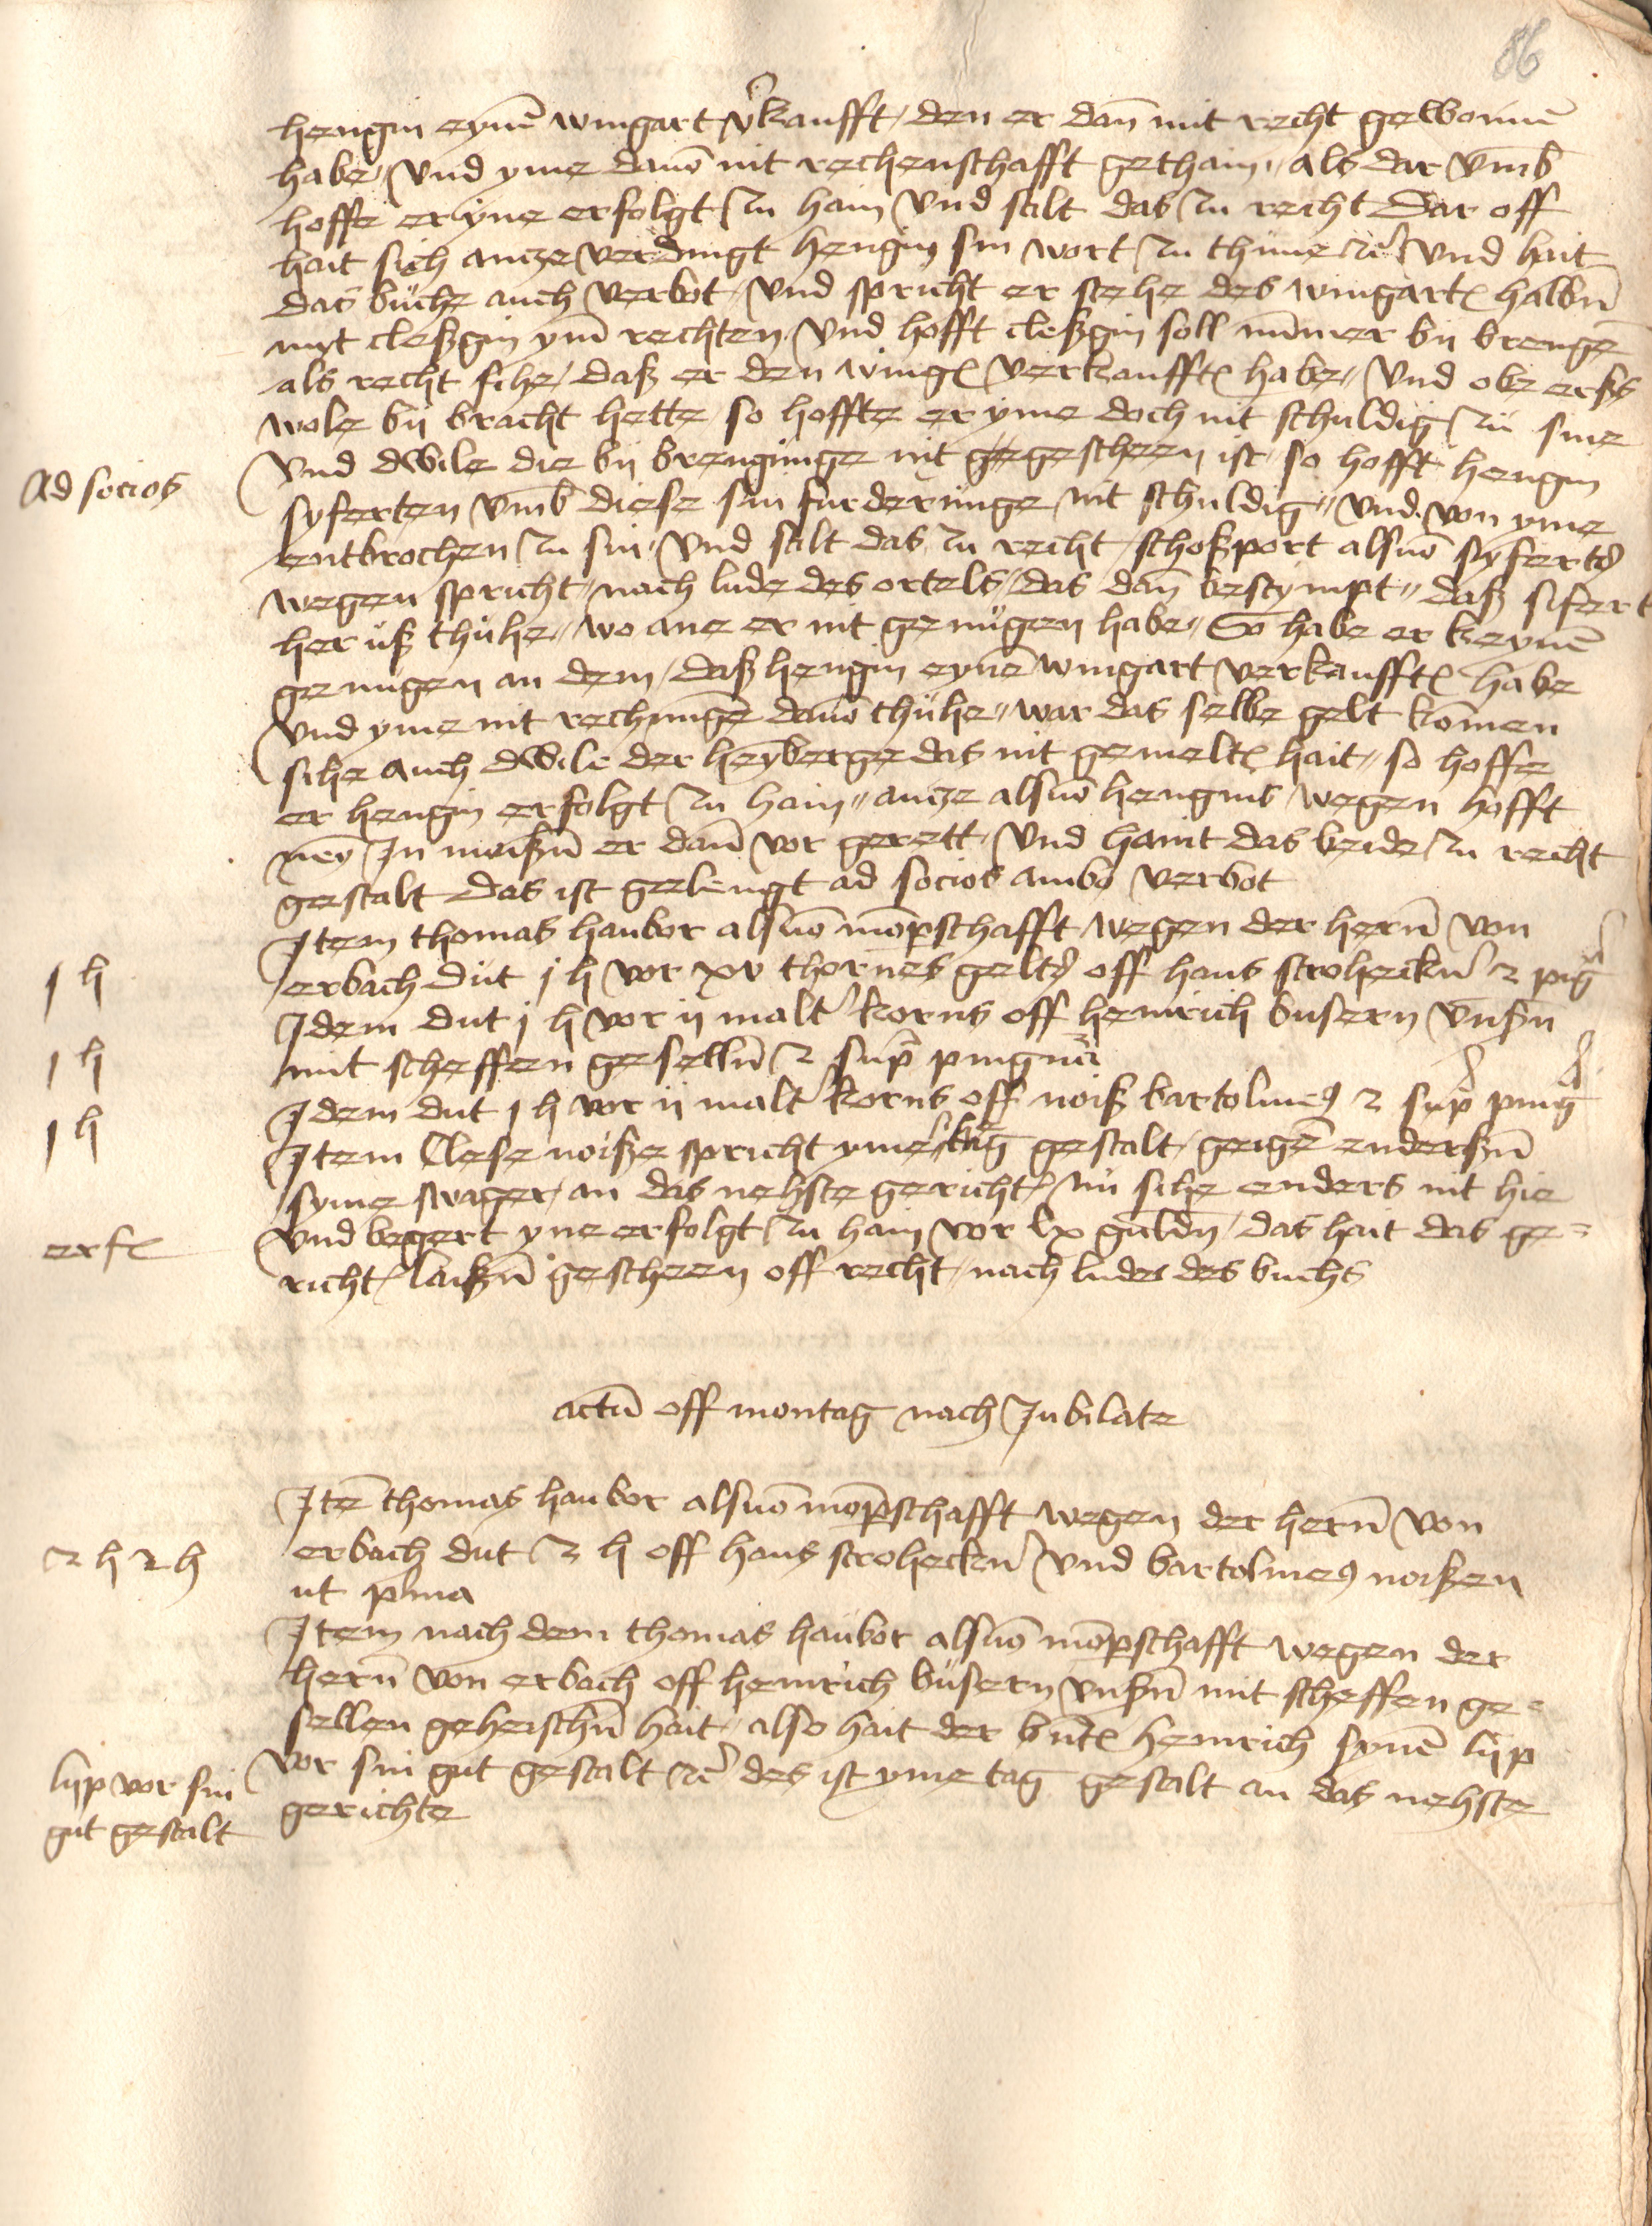 86
hengin eynē wingart v̓kaufft / den er dan̄ mit recht gewonnē
habe / Vnd yme dauō nit rechenschafft gethain // als dar vmb
hoffe er yne erfolgt zu hain vnd stalt das zu recht Dar off
hait sich antze verdingt hengin sin wort zu thune ac̓ vnd hait
das buche auch verbot / vnd spricht er stehe des wingart halbn̄
myt cleßgin ym̄ rechten / vnd hofft cleßgin soll nūmer bij brengē
als recht sihe / daß er den wing verkaufft habe // Vnd obe erß
wole bij bracht hette so hoffte er yme doch nit schuldig zu sine
Ad socios
Vnd dwile die bij brengunge nit gescheen ist / so hofft hengin
syferten vmb diese sin furderunge nit schuldig // vnd von yme
entbrochen zu sin / vnd stalt das zu recht / schoßport alsuō syfertꝭ
wegen spricht // nach lude des ortels / das dan̄ bestympt // daß sifert
her uß thuhe // wo ane er nit genugen habe // So habe er keynē
genugen an dem / daß hengin eynē wingart verkaufft habe
Vnd yme nit rechnungē dauō thuhe // war das selbe gelt kōmen
sihe auch dwile der heyberge das nit gemelt hait // so hoffe
er hengin erfolgt zu hain // antze alsuō hengins wegen hofft
ney In moißn̄ er dan̄ vor gerett / vnd haint das beide zu recht
gestalt das ist gelengt ad socios ambo verbot
Item thomas haubor alsuō mōpschafft wegen der hern̄ von
1 h
erbach dut j h vor xv thornes geltꝭ off hans stroheckn̄ 2 pig̓
Idem dut j h vor ij malt̓ korns off heinrich busern vnßn̄
1 h
mit scheffen geselln̄ 2 sup̄ pingn̄a
1 h
Idem dut j h vor ij malt̓ korns off noiß bartolmeꝰ 2 sup̄ ping̓
Item Clese noiße spricht yme sij tag gestalt / geigē enderßn̄
syme swager / an das nehste gericht / nu sihe enders nit hie
erf
Vnd begert yne erfolgt zu hain vor lx guldn̄ / das hait das ge=
richt laißn̄ gescheen off recht / nach lude des buchs
actū off montag nach Jubilate
Itē thomas haubor alsuō mōpschafft wegen der hern̄ von
2 h 2 h
erbach dut 2 h off hans stroheckn̄ vnd bartolmeꝰ noißen
ut p̓ma
Item nach dem thomas haubor alsuō mōpschafft wegen der
hern̄ von erbach off heinrich busern vnßn̄ mit scheffen ge=
sellen geheischn̄ hait / also hait der bn̄t heinrich synē lijp
lijp vor sin
vor sin gut gestalt ac̓ des ist yme tag gestalt an das nehste
gut gestalt
gerichte